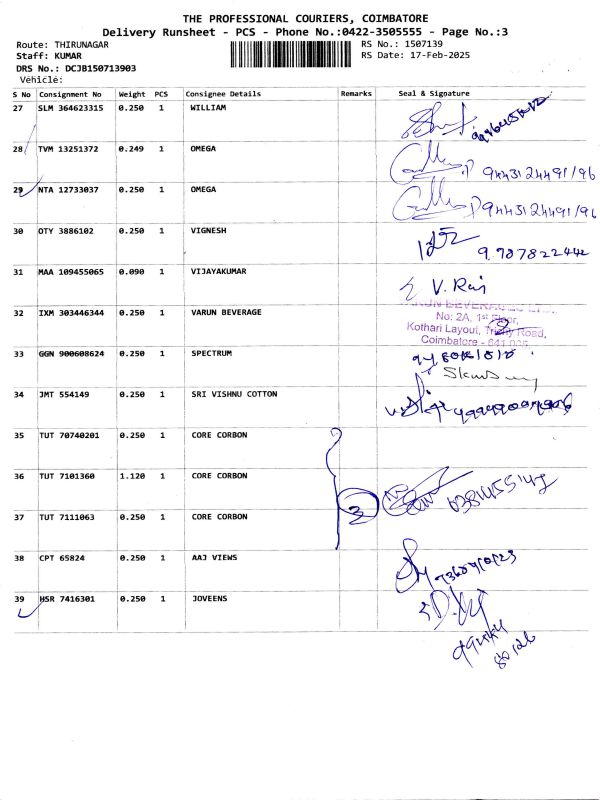 THE PROFESSIONAL COURIERS, COIMBATORE
Delivery Runsheet - PCS - Phone No.:0422-3505555 - Page No.:3
Route: THIRUNAGAR RS No.: 1507139
Staff: KUMAR RS Date: 17-Feb-2025
DRS No.: DCJB150713903
Vehicle:
S No Consignment No Weight PCS Consignee Details Remarks Seal & Signature
27 SLM 364623315 0.250 1 WILLIAM
28 TVM 13251372 0.249 1 OMEGA 9443124491/96
29 NTA 12733037 0.250 1 OMEGA 9443124491/96
30 OTY 3886102 0.250 1 VIGNESH 9787822442
31 MAA 109455065 0.090 1 VIJAYAKUMAR V. Raj
32 IXM 303446344 0.250 1 VARUN BEVERAGE
No: 2A, 1st Floor,
Kothari Layout, Trichy Road,
Coimbatore - 641 005
33 GGN 900608624 0.250 1 SPECTRUM
34 JMT 554149 0.250 1 SRI VISHNU COTTON
35 TUT 70740201 0.250 1 CORE CORBON
36 TUT 7101360 1.120 1 CORE CORBON
3
37 TUT 7111063 0.250 1 CORE CORBON
38 CPT 65824 0.250 1 AAJ VIEWS
39 HSR 7416301 0.250 1 JOVEENS